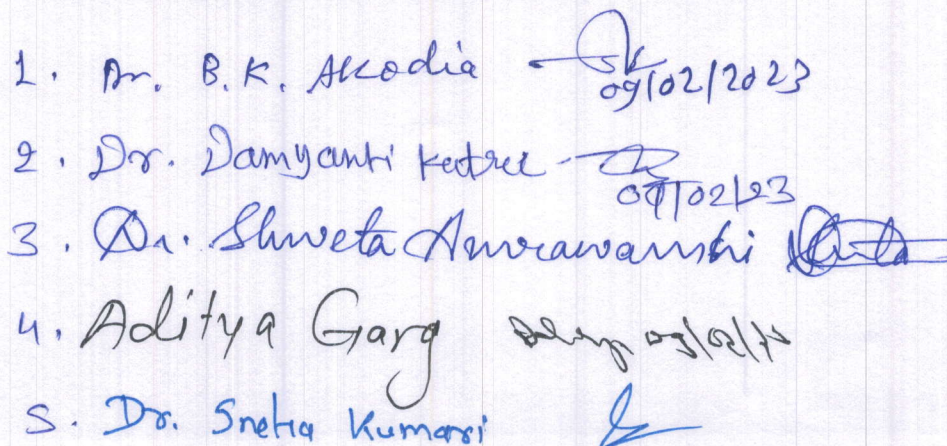 1. Dr. B.K. Akodia 09/02/2023
2. Dr. Damyanti Katre 09/02/23
3. Dr. Shweta Amrawanshi
4. Aditya Garg
5. Dr. Sneha Kumari